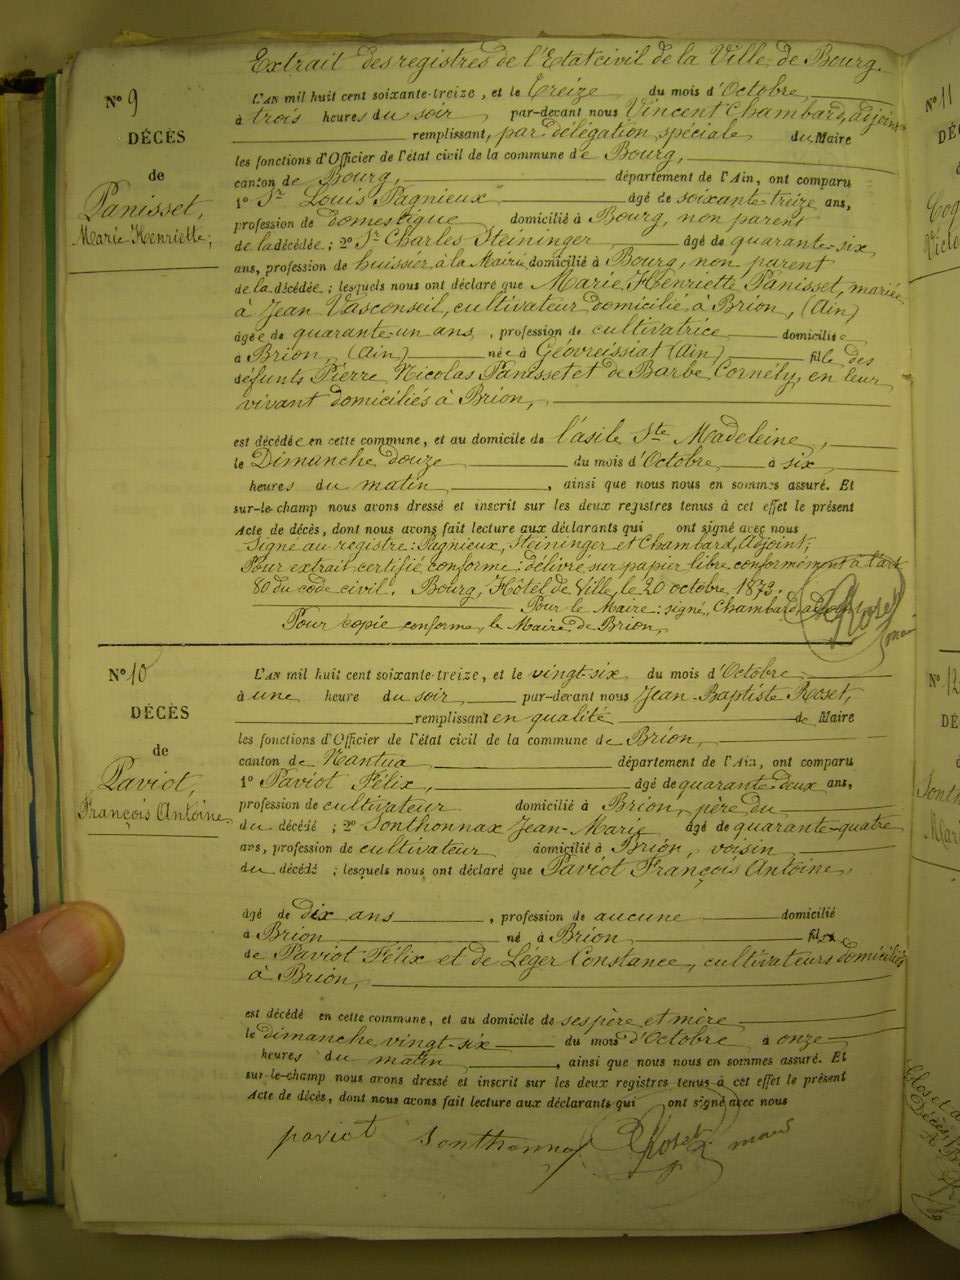 Extrait des registres de l'Etat civil de la Ville de Bourg.
N° 9
DÉCÈS
de
Panisset,
Marie Henriette,
L'AN mil huit cent soixante-treize, et le treize du mois d'Octobre
à trois heures du soir, par-devant nous Vincent Chambard, adjoint
remplissant, par délégation spéciale du Maire
les fonctions d'Officier de l'état civil de la commune de Bourg,
canton de Bourg, département de l'Ain, ont comparu
1° Sr Louis Pagnieux âgé de soixante treize ans,
profession de domestique domicilié à Bourg, non parent
de la décédée ; 2° Sr Charles Steininger, âgé de quarante-six
ans, profession de huissier à la Mairie domicilié à Bourg, non parent
de la décédée ; lesquels nous ont déclaré que Marie Henriette Panisset, mariée
à Jean Vasconseil, cultivateur domicilié à Brion, (Ain)
âgée de quarante un ans, profession de cultivatrice domiciliée
à Brion, (Ain) née à Géovreissiat (Ain) fille des
défunts Pierre Nicolas Panisset et de Barbe Cornély, en leur
vivant domiciliés à Brion,
est décédée en cette commune, et au domicile de l'asile Ste Madeleine,
le Dimanche douze du mois d'Octobre à six
heures du matin, ainsi que nous nous en sommes assuré. Et
sur-le-champ nous avons dressé et inscrit sur les deux registres tenus à cet effet le présent
Acte de décès, dont nous avons fait lecture aux déclarants qui ont signé avec nous
Signé au registre : Pagnieux, Steininger et Chambard, Adjoint;
Pour extrait certifié conforme : délivré sur papier libre conformément à l'art
80 du code civil. Bourg, Hôtel de Ville, le 20 octobre 1873.
Pour le Maire : signé, Chambard, adjoint
Pour copie conforme, le Maire de Brion,
Roset
maire
N° 10
DÉCÈS
de
Paviot,
François Antoine
L'AN mil huit cent soixante-treize, et le vingt-six du mois d'Octobre
à une heure du soir, par-devant nous Jean-Baptiste Roset,
remplissant en qualité de Maire
les fonctions d'Officier de l'état civil de la commune de Brion,
canton de Nantua, département de l'Ain, ont comparu
1° Paviot Félix, âgé de quarante deux ans,
profession de cultivateur domicilié à Brion, père du
du décédé ; 2° Sonthonnax Jean-Marie âgé de quarante-quatre
ans, profession de cultivateur domicilié à Brion, voisin
du décédé ; lesquels nous ont déclaré que Paviot François Antoine,
âgé de dix ans, profession de aucune domicilié
à Brion né à Brion, fils
de Paviot Félix et de Léger Constance, cultivateurs domiciliés
à Brion,
est décédé en cette commune, et au domicile de ses père et mère
le dimanche vingt-six du mois d'Octobre à onze
heures du matin, ainsi que nous nous en sommes assuré. Et
sur-le-champ nous avons dressé et inscrit sur les deux registres tenus à cet effet le présent
Acte de décès, dont nous avons fait lecture aux déclarants qui ont signé avec nous
paviot Sonthonnax Roset maire
N° 11
DÉ
N° 12
DÉ